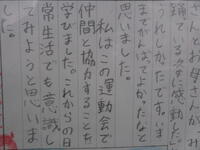 さんとお母さんが
踊ってる姿に感動した。
うれしかたです。いま
までがんばってよかったなと
思いました。
私はこの運動会で
仲間と協力することを
学びました。これからの日
常生活でも意識し
てみようと思いま
した。